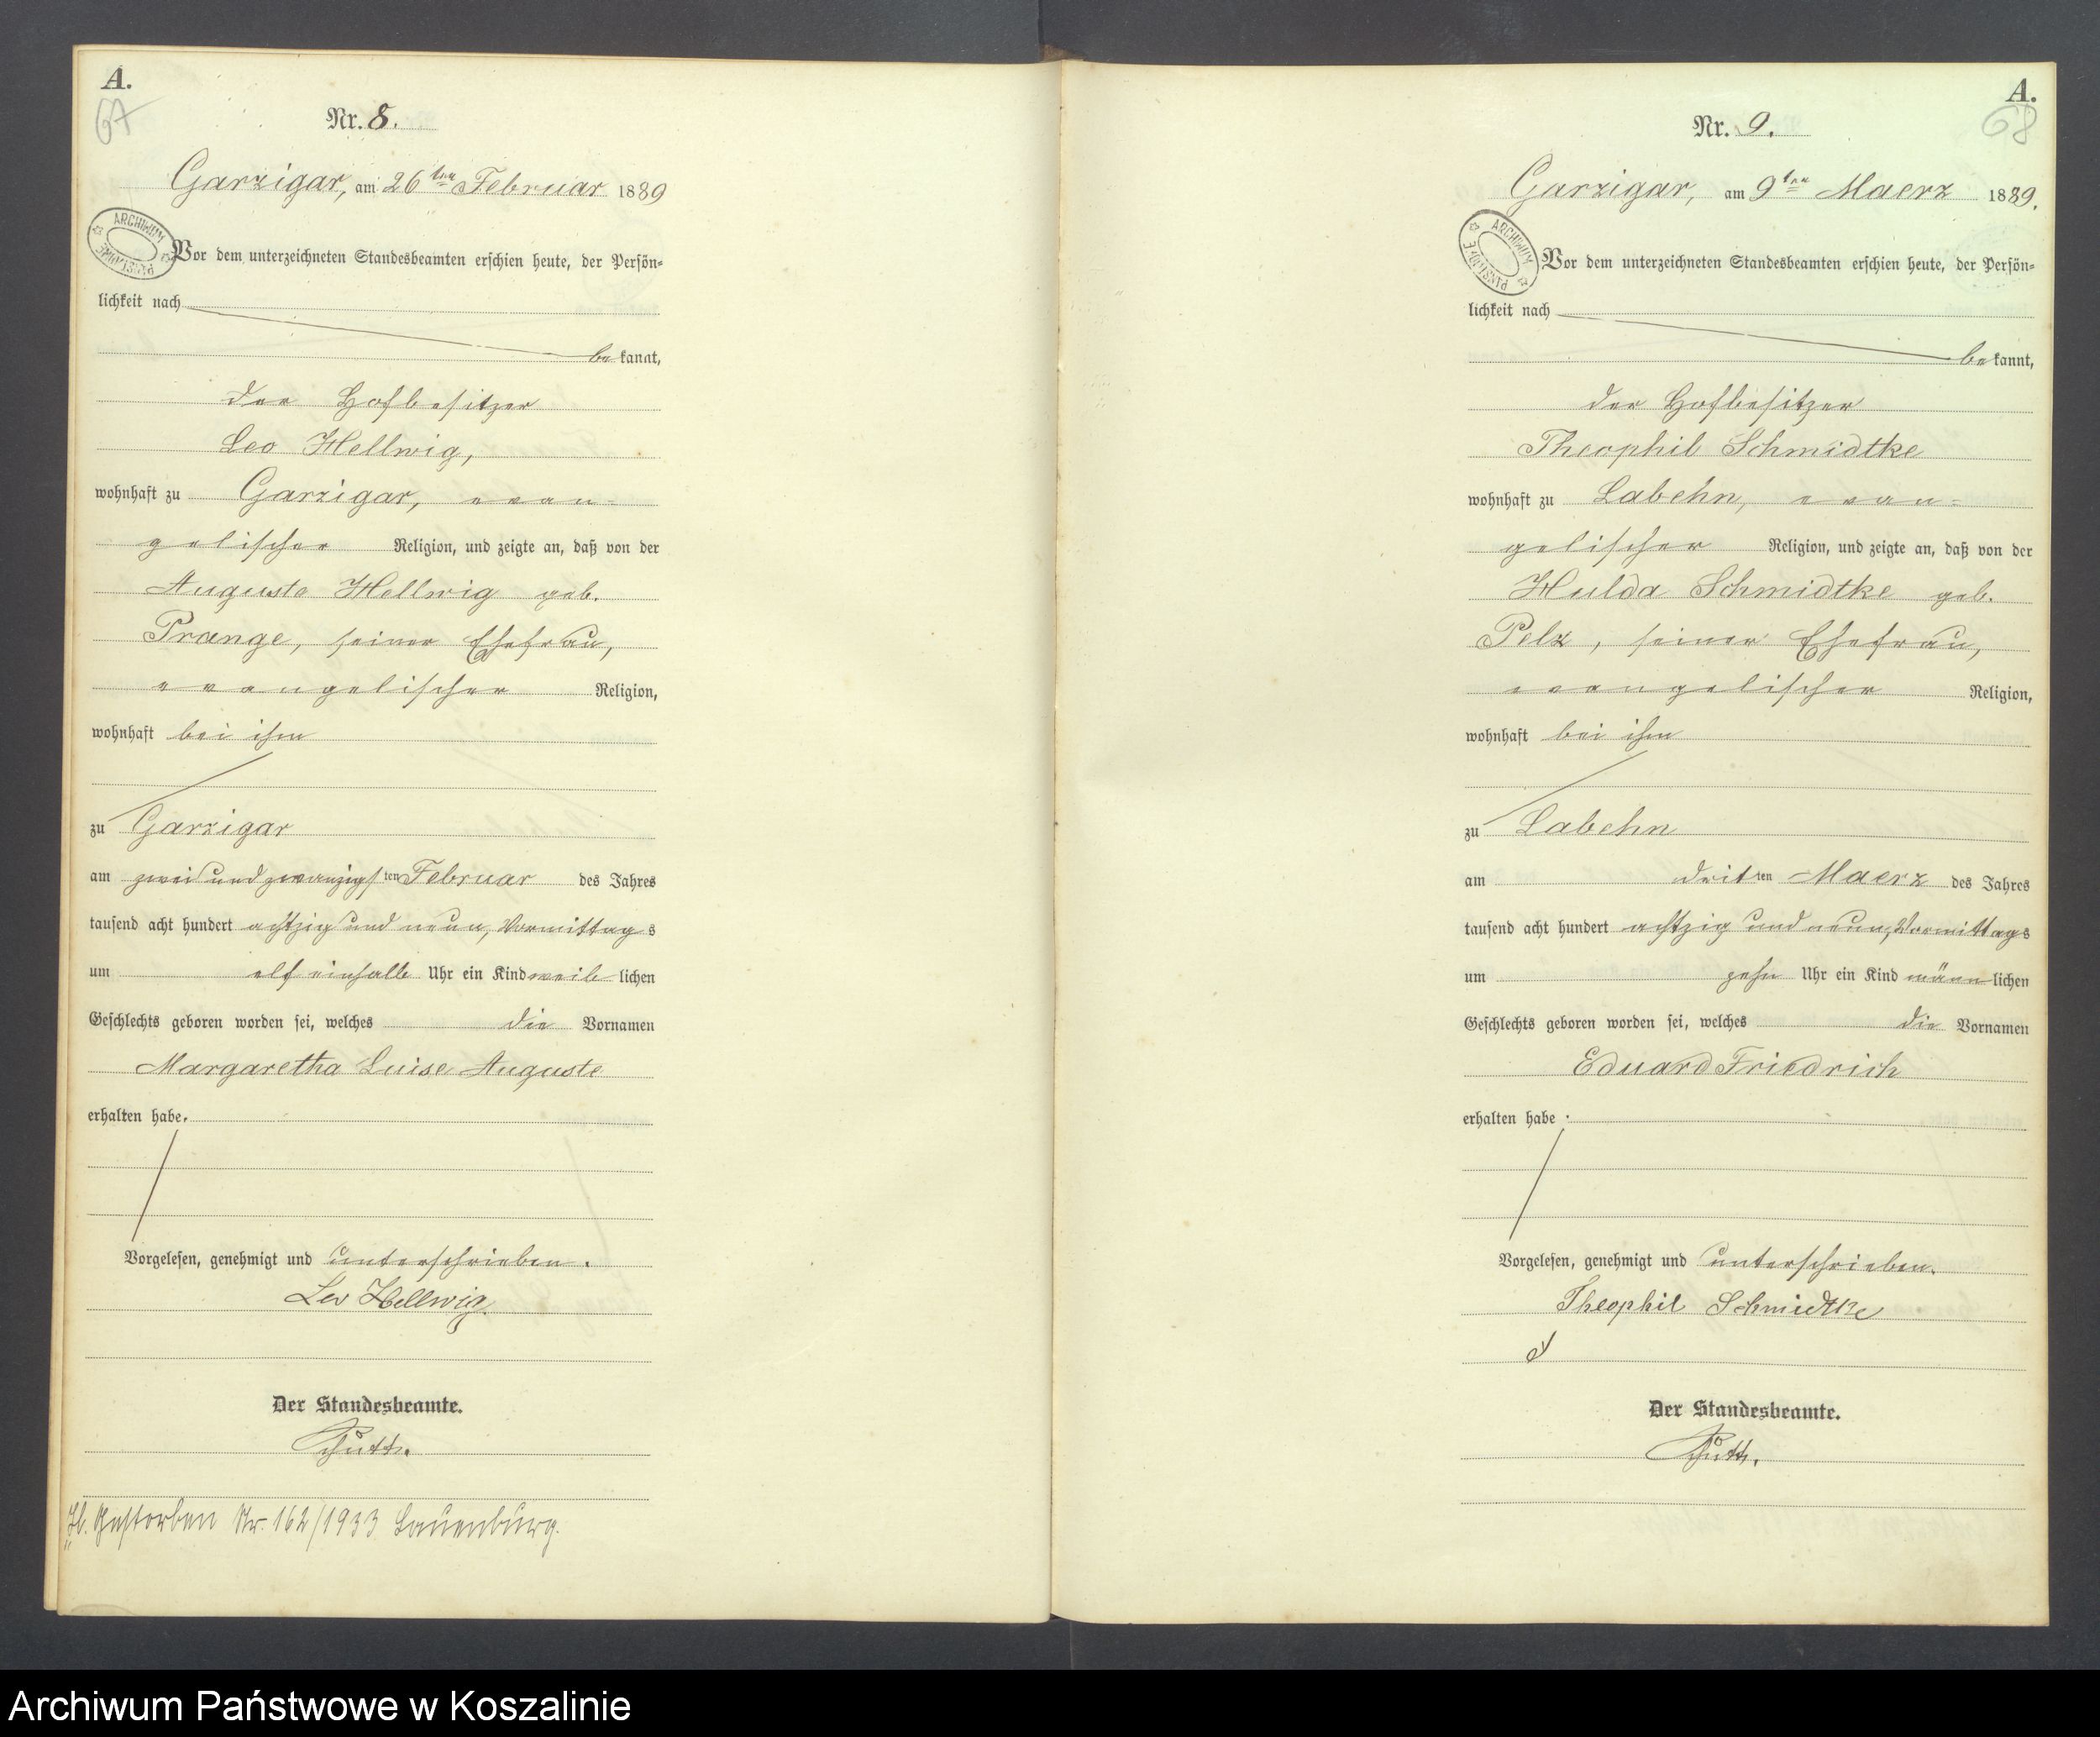 A.
67
Nr. 8.
Garzigar, am 26ten Februar 1889
ARCHIWUM
PAŃSTWOWE
Vor dem unterzeichneten Standesbeamten erschien heute, der Persön-
lichkeit nach
bekannt,
der Hofbesitzer
Leo Hellwig,
wohnhaft zu Garzigar, evan-
gelischer Religion, und zeigte an, daß von der
Auguste Hellwig geb.
Prange, seiner Ehefrau,
evangelischer Religion,
wohnhaft bei ihm
zu Garzigar
am zwei und zwanzigsten Februar des Jahres
tausend acht hundert achtzig und neun, Vormittags
um elf einhalb Uhr ein Kind weiblichen
Geschlechts geboren worden sei, welches die Vornamen
Margaretha Luise Auguste
erhalten habe.
Vorgelesen, genehmigt und unterschrieben.
Leo Hellwig.
Der Standesbeamte.
Gestorben Nr. 162/1933 Lauenburg.
A.
68
Nr. 9.
Garzigar, am 9ten Maerz 1889.
ARCHIWUM
PAŃSTWOWE
Vor dem unterzeichneten Standesbeamten erschien heute, der Persön-
lichkeit nach
bekannt,
der Hofbesitzer
Theophil Schmidtke
wohnhaft zu Labehn, evan-
gelischer Religion, und zeigte an, daß von der
Hulda Schmidtke geb.
Pelz, seiner Ehefrau,
evangelischer Religion,
wohnhaft bei ihm
zu Labehn
am dritten Maerz des Jahres
tausend acht hundert achtzig und neun, Vormittags
um zehn Uhr ein Kind männlichen
Geschlechts geboren worden sei, welches die Vornamen
Eduard Friedrich
erhalten habe.
Vorgelesen, genehmigt und unterschrieben.
Theophil Schmidtke
Der Standesbeamte.
Archiwum Państwowe w Koszalinie